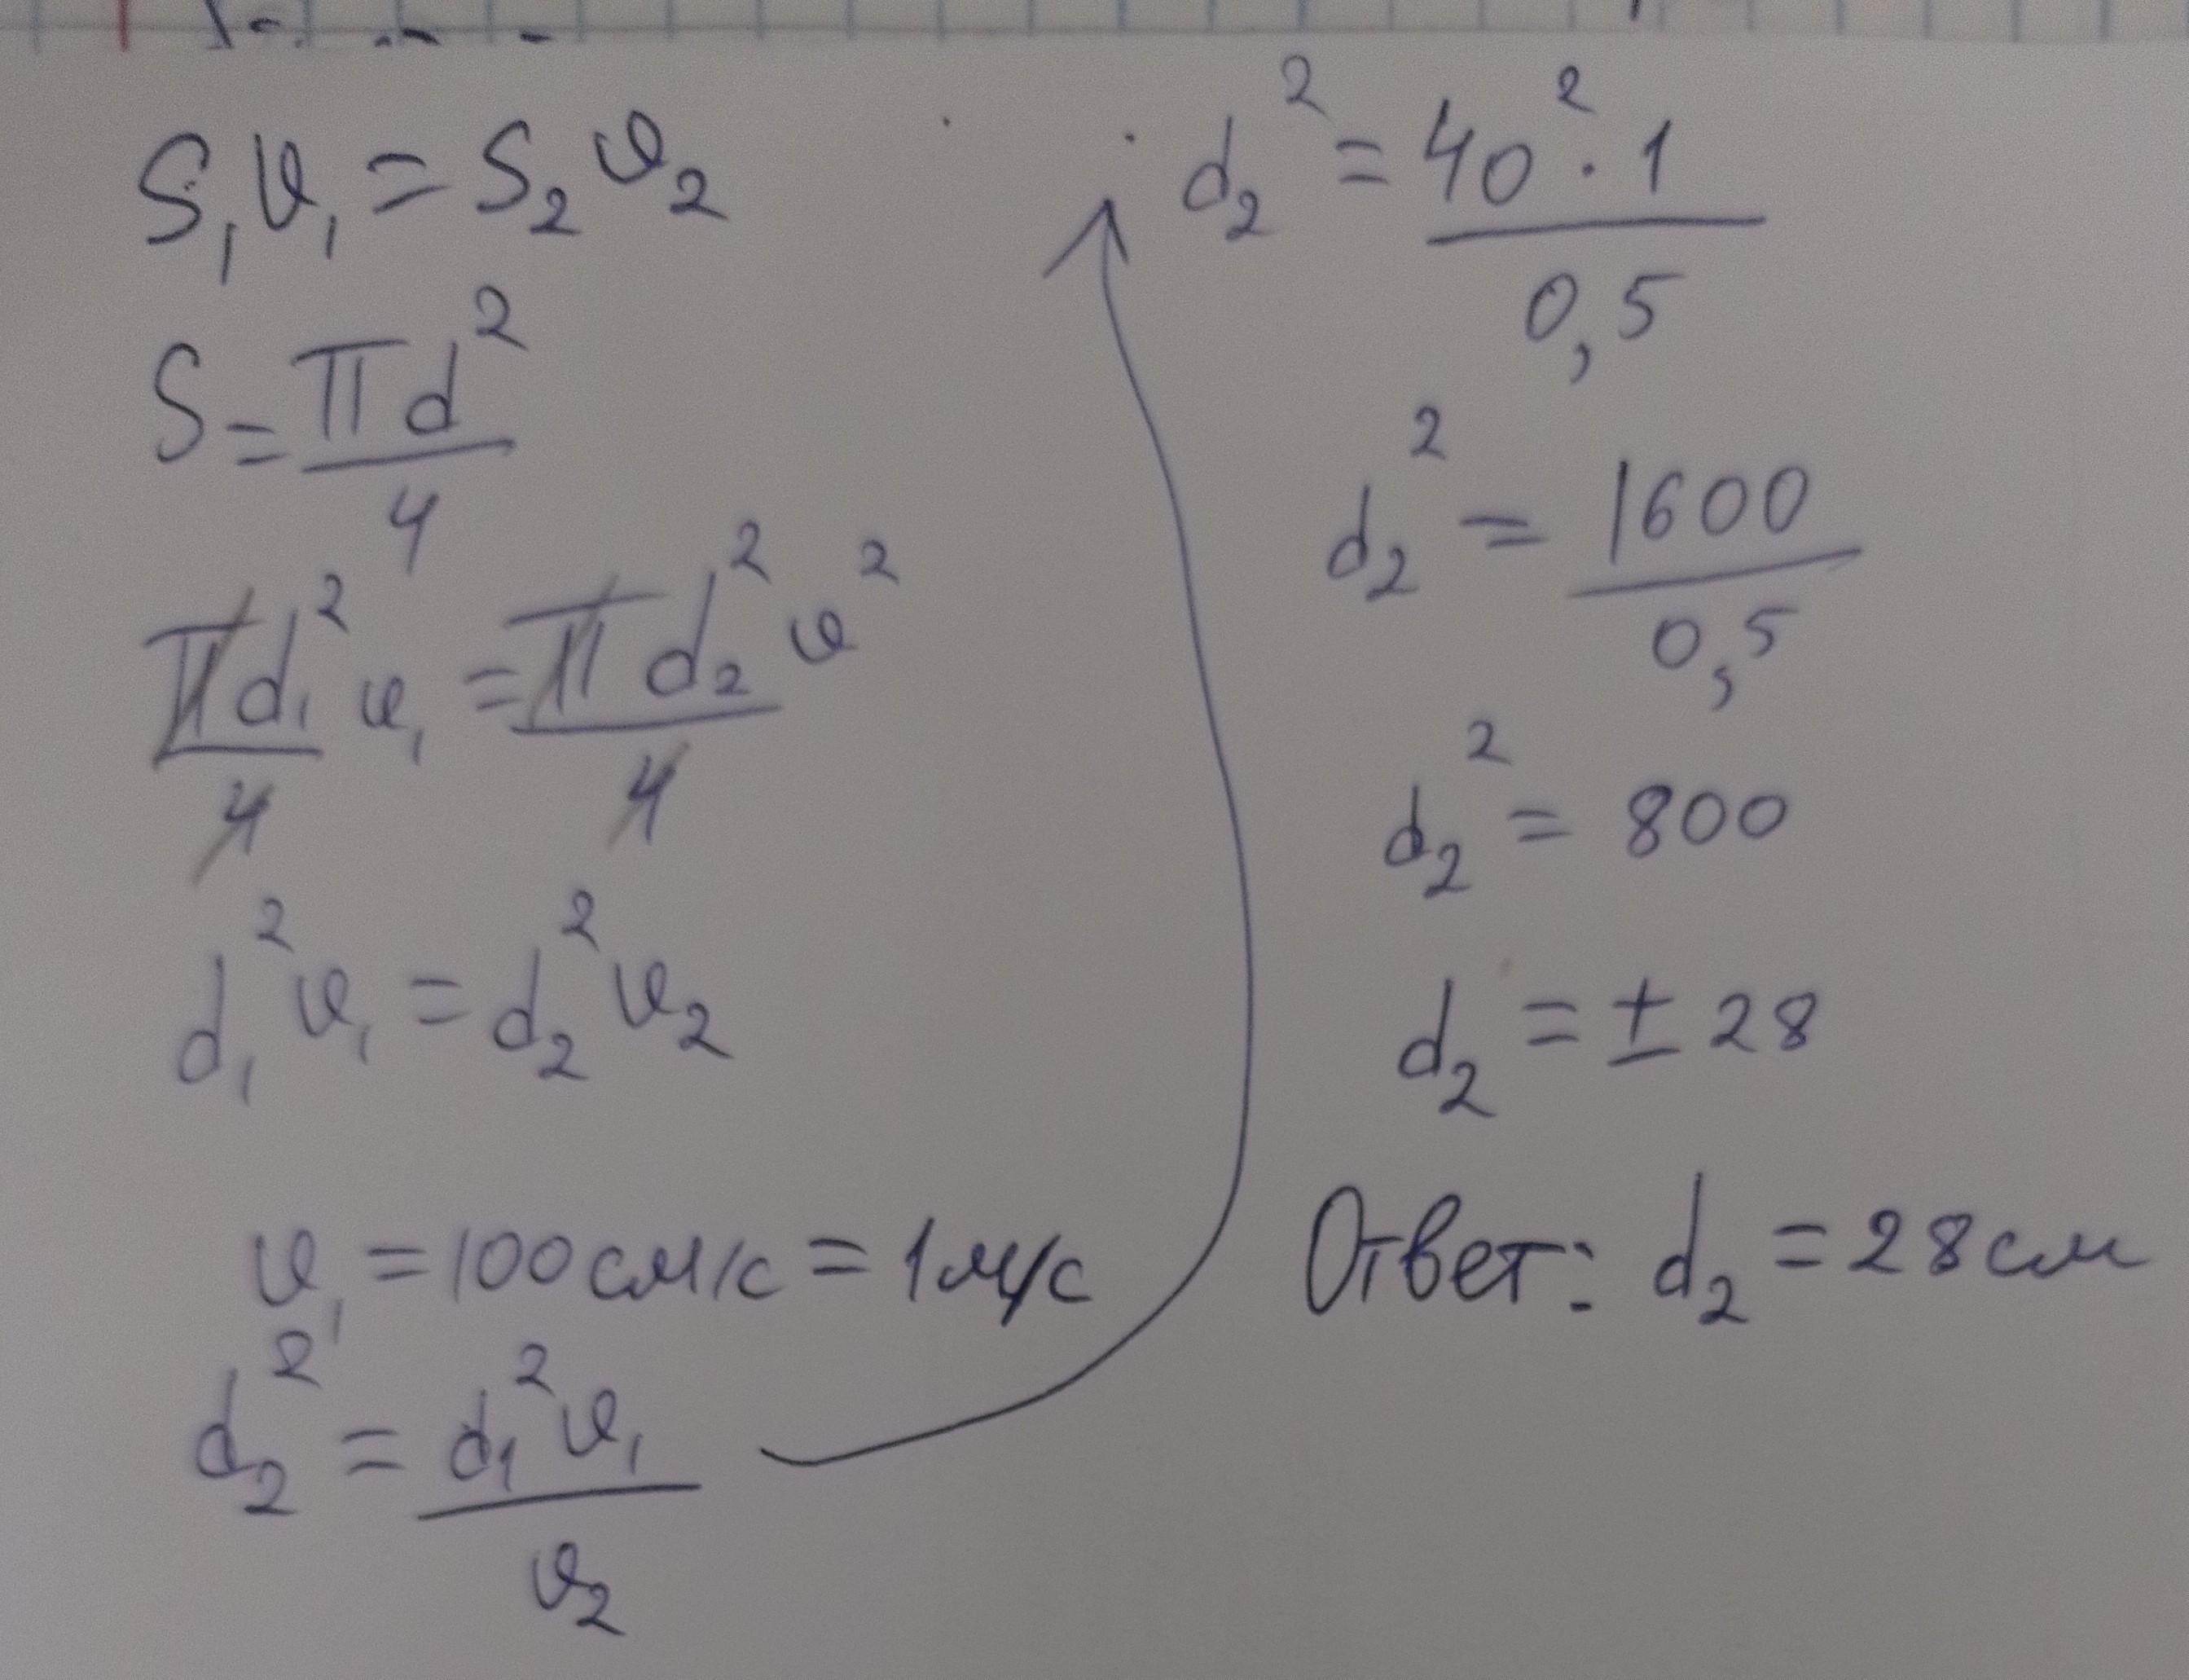 S₁υ₁ = S₂υ₂
S = πd²/4
πd₁²/4 υ₁ = πd₂²/4 υ²
d₁²υ₁ = d₂²υ₂
υ₁ = 100 см/с = 1 м/с
d₂² = d₁²υ₁/υ₂
d₂² = 40² · 1/0,5
d₂² = 1600/0,5
d₂² = 800
d₂ = ± 28
Ответ: d₂ = 28 см